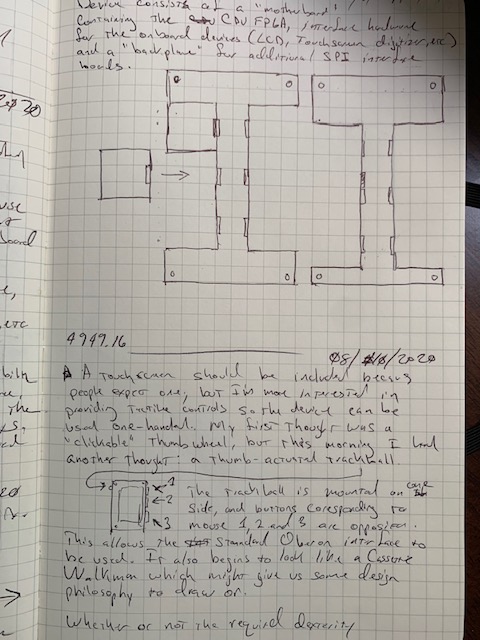 Device consists of a "motherboard"
containing the CDU FPGA, interface hardware
for the onboard devices (LCD, Touchscreen digitizer, etc)
and a "backplane" for additional SPI interface
boards.
4949.16
08/10/2020
A touchscreen should be included because
people expect one, but I'm more interested in
providing tactile controls so the device can be
used one-handed. My first thought was a
"clickable" thumbwheel, but this morning I had
another thought: a thumb-actuated trackball.
1
2
3
The trackball is mounted on one
side, and buttons coresponding to
mouse 1, 2 and 3 are opposite.
This allows the standard Oberon interface to
be used. It also begins to look like a Cassette
Walkman which might give us some design
philosophy to draw on.
Whether or not the required dexterity
2020
use
board
etc
the